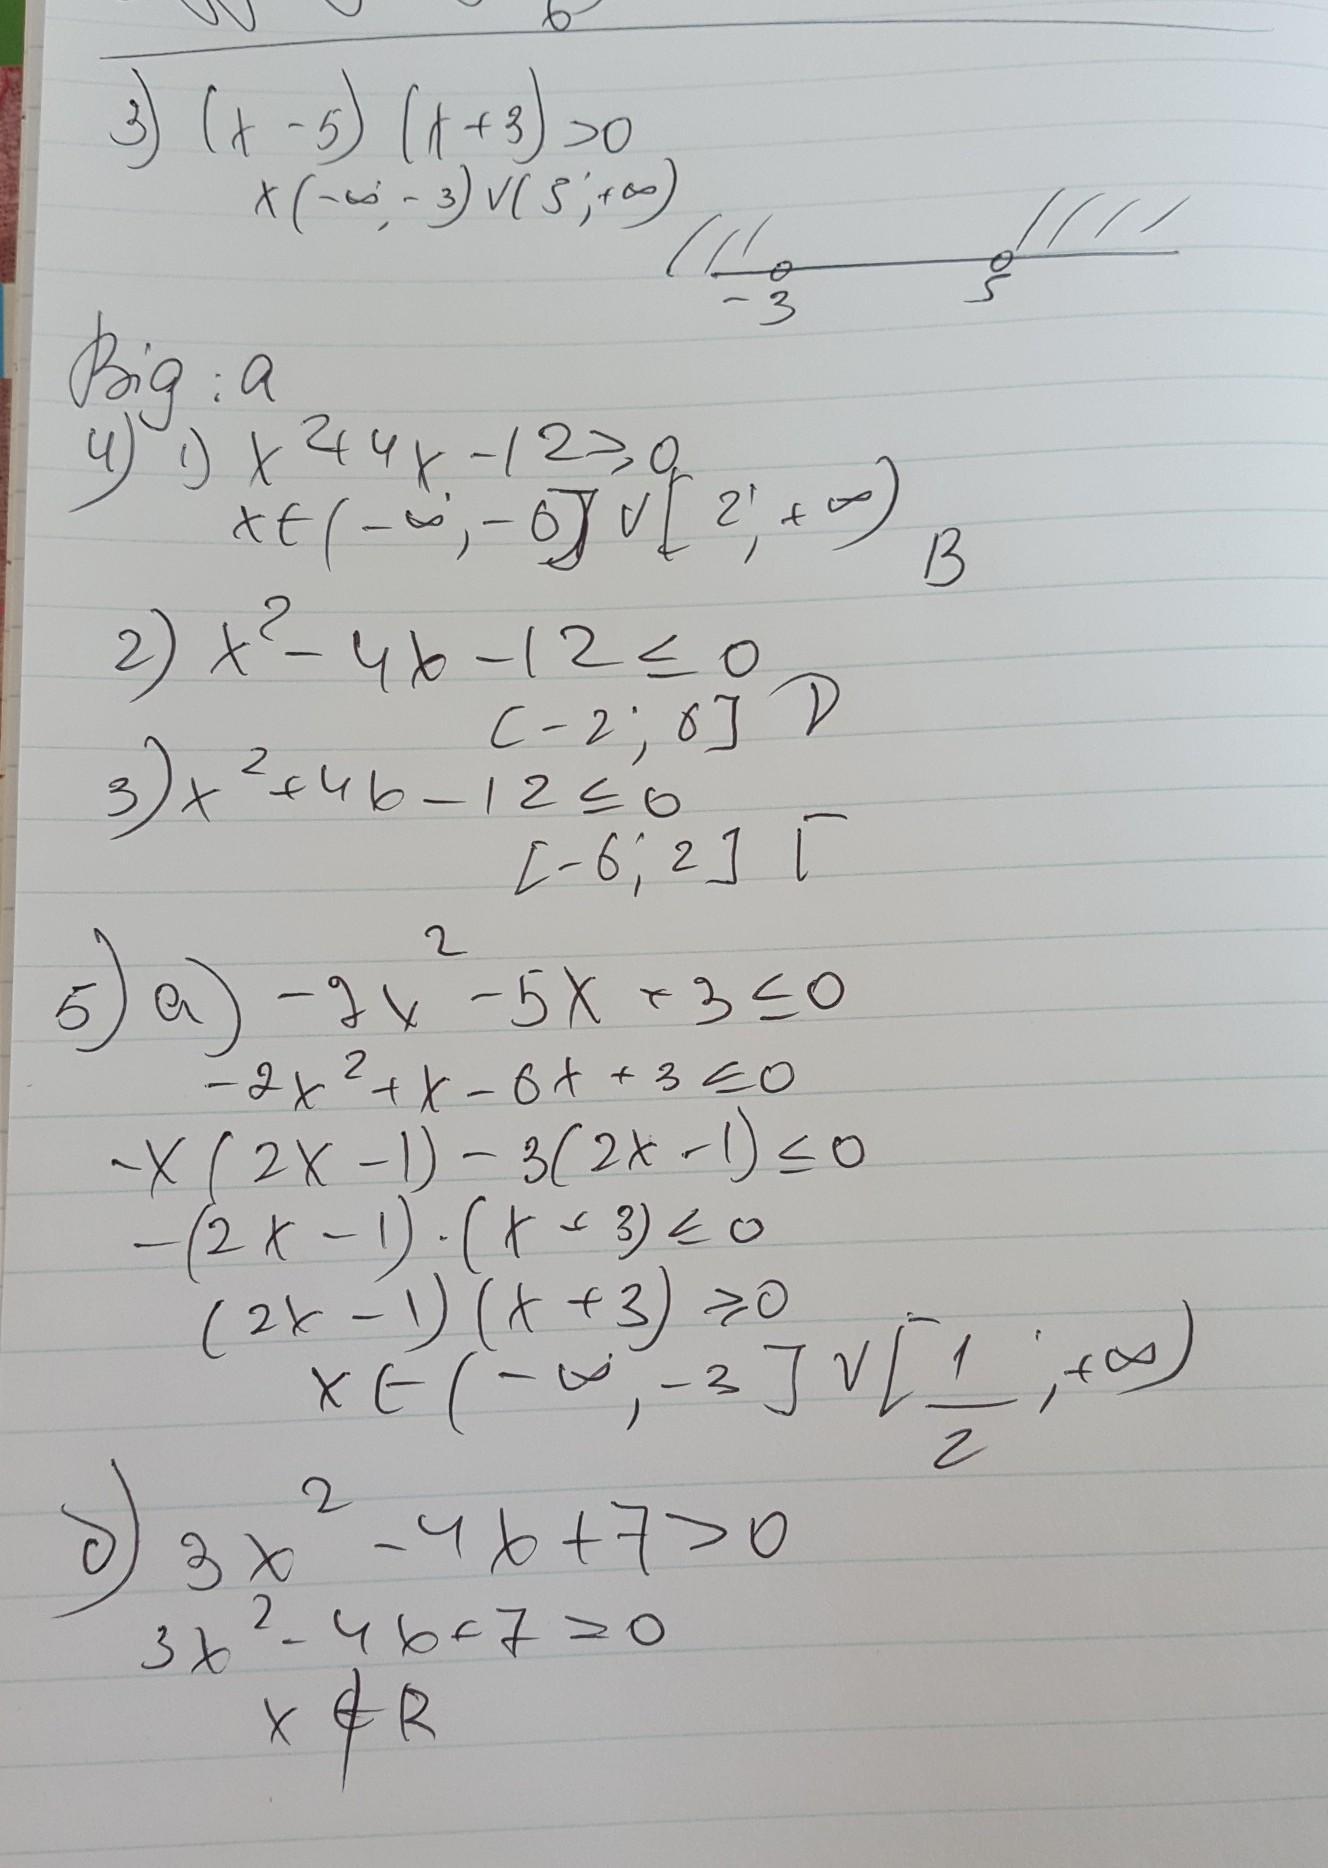 3) (x-5) (x+3) >0
x(-∞; -3) ∨ (5; +∞)
-3 5
Від: а
4) 1) x²+4x-12≥0
x∈(-∞; -6] ∨ [2; +∞) В
2) x²-4x-12≤0
[-2; 6] D
3) x²+4x-12≤0
[-6; 2] Г
5) а) -2x²-5x+3≤0
-2x²+x-6x+3≤0
-x(2x-1)-3(2x-1)≤0
-(2x-1)·(x+3)≤0
(2x-1)(x+3)≥0
x∈(-∞; -3] ∨ [1/2; +∞)
б) 3x²-4x+7>0
3x²-4x+7=0
x∉R